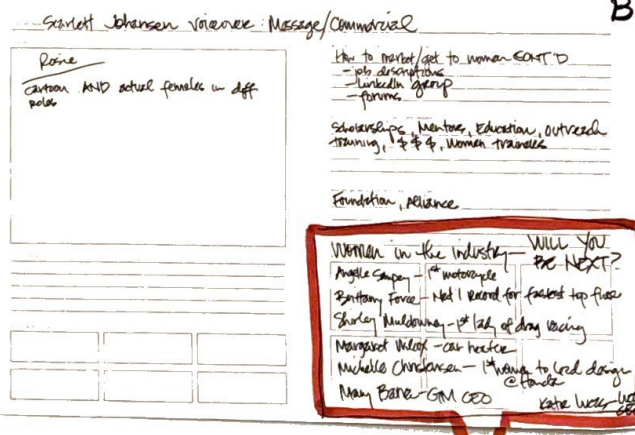 Scarlett Johansen voiceover Message/Commercial
B
Rosie
cartoon AND actual females in diff
roles
How to market/get to women CONT'D
- job descriptions
- LinkedIn group
- forums
Scholarships, Mentors, Education, Outreach
training, $$$, Women trainees
Foundation, Alliance
Women in the Industry - WILL YOU
BE NEXT?
Angelle Sampey - 1st motorcycle
Brittany Force - Nat'l Record for fastest top fuel
Shirley Muldowney - 1st lady of drag racing
Margaret Wilcox - car heater
Michelle Christensen - 1st woman to lead design
@Honda
Mary Barra - GM CEO
Katie